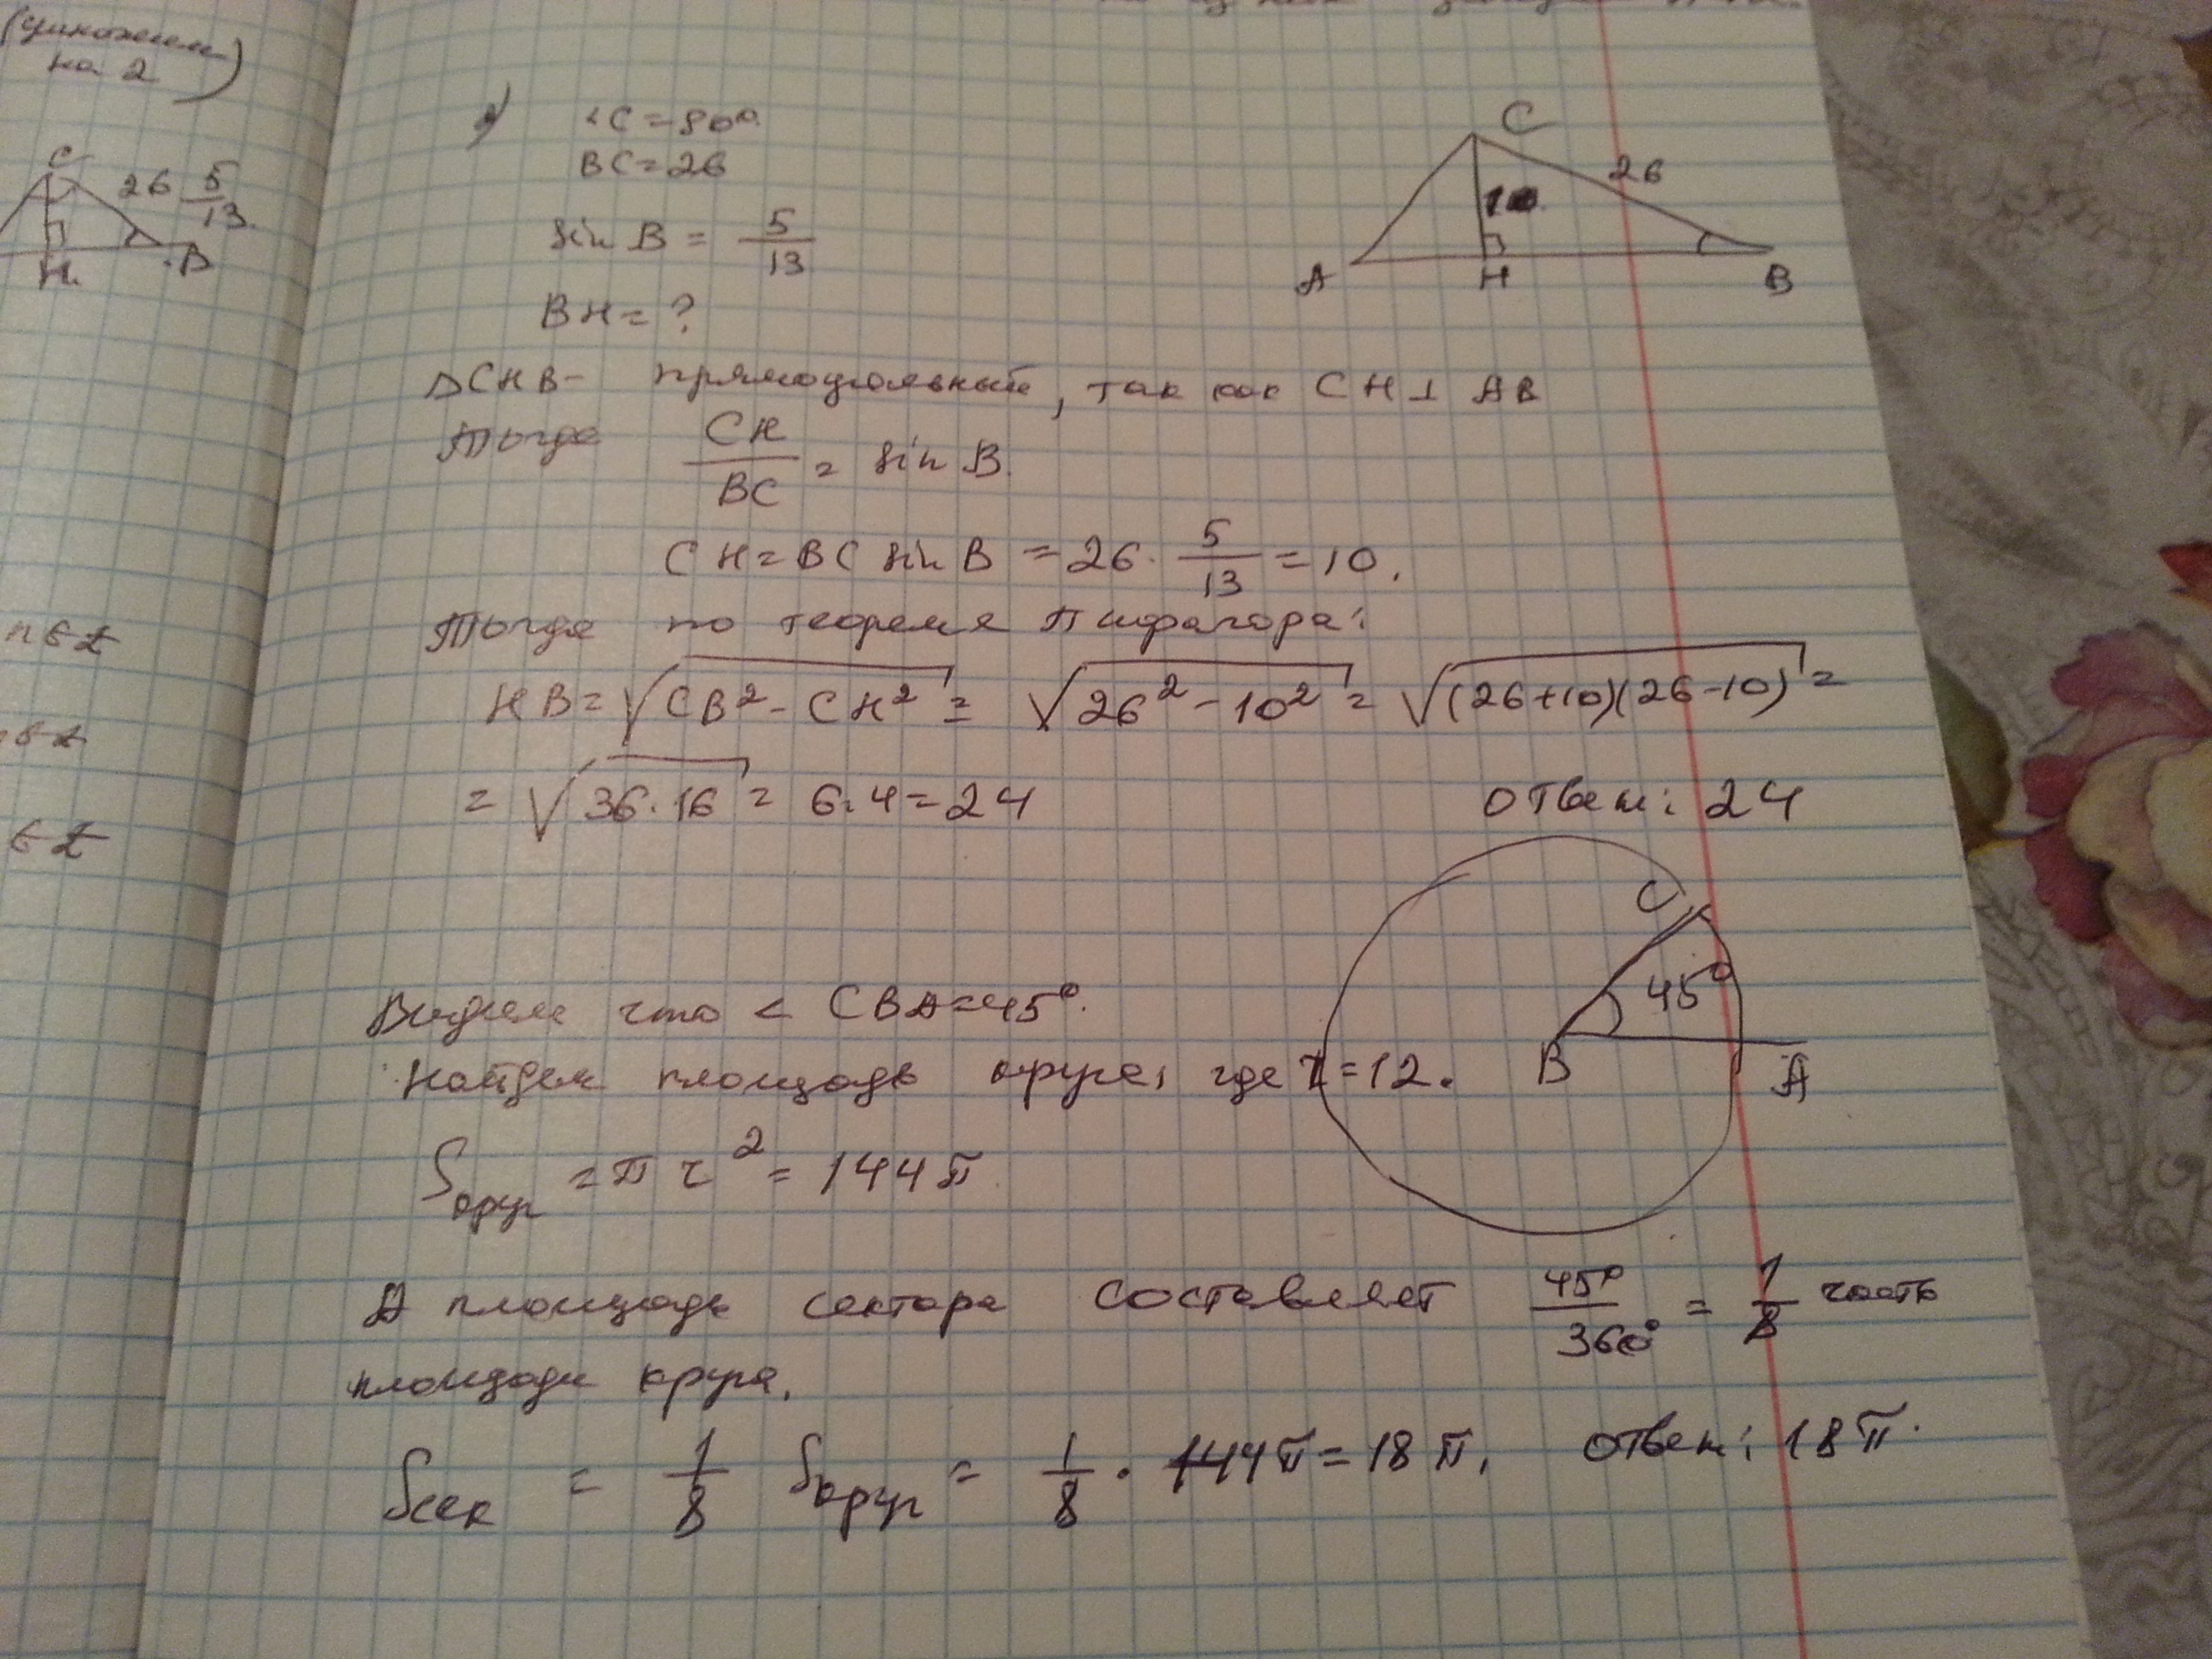 (умножим
на 2
C
26 5/13
H
B
n∈Z
∈Z
∈Z
<C=80°
BC=26
sin B = 5/13
BH=?
C
26
10
A
H
B
△CHB- прямоугольный, так как CH⊥AB
Тогда CH/BC = sin B.
CH=BC sin B = 26·5/13=10.
Тогда по теореме Пифагора:
HB=√(CB²-CH²) = √(26²-10²) = √((26+10)(26-10)) =
= √(36·16) = 6·4=24
Ответ: 24
C
45°
B
A
Видим что < CBA=45°.
Найдем площадь круга, где r=12.
Sкруг = πr² = 144π
А площадь сектора составляет 45°/360° = 1/8 часть
площади круга.
Sсек = 1/8 Sкруг = 1/8 · 144π=18π. Ответ: 18π.